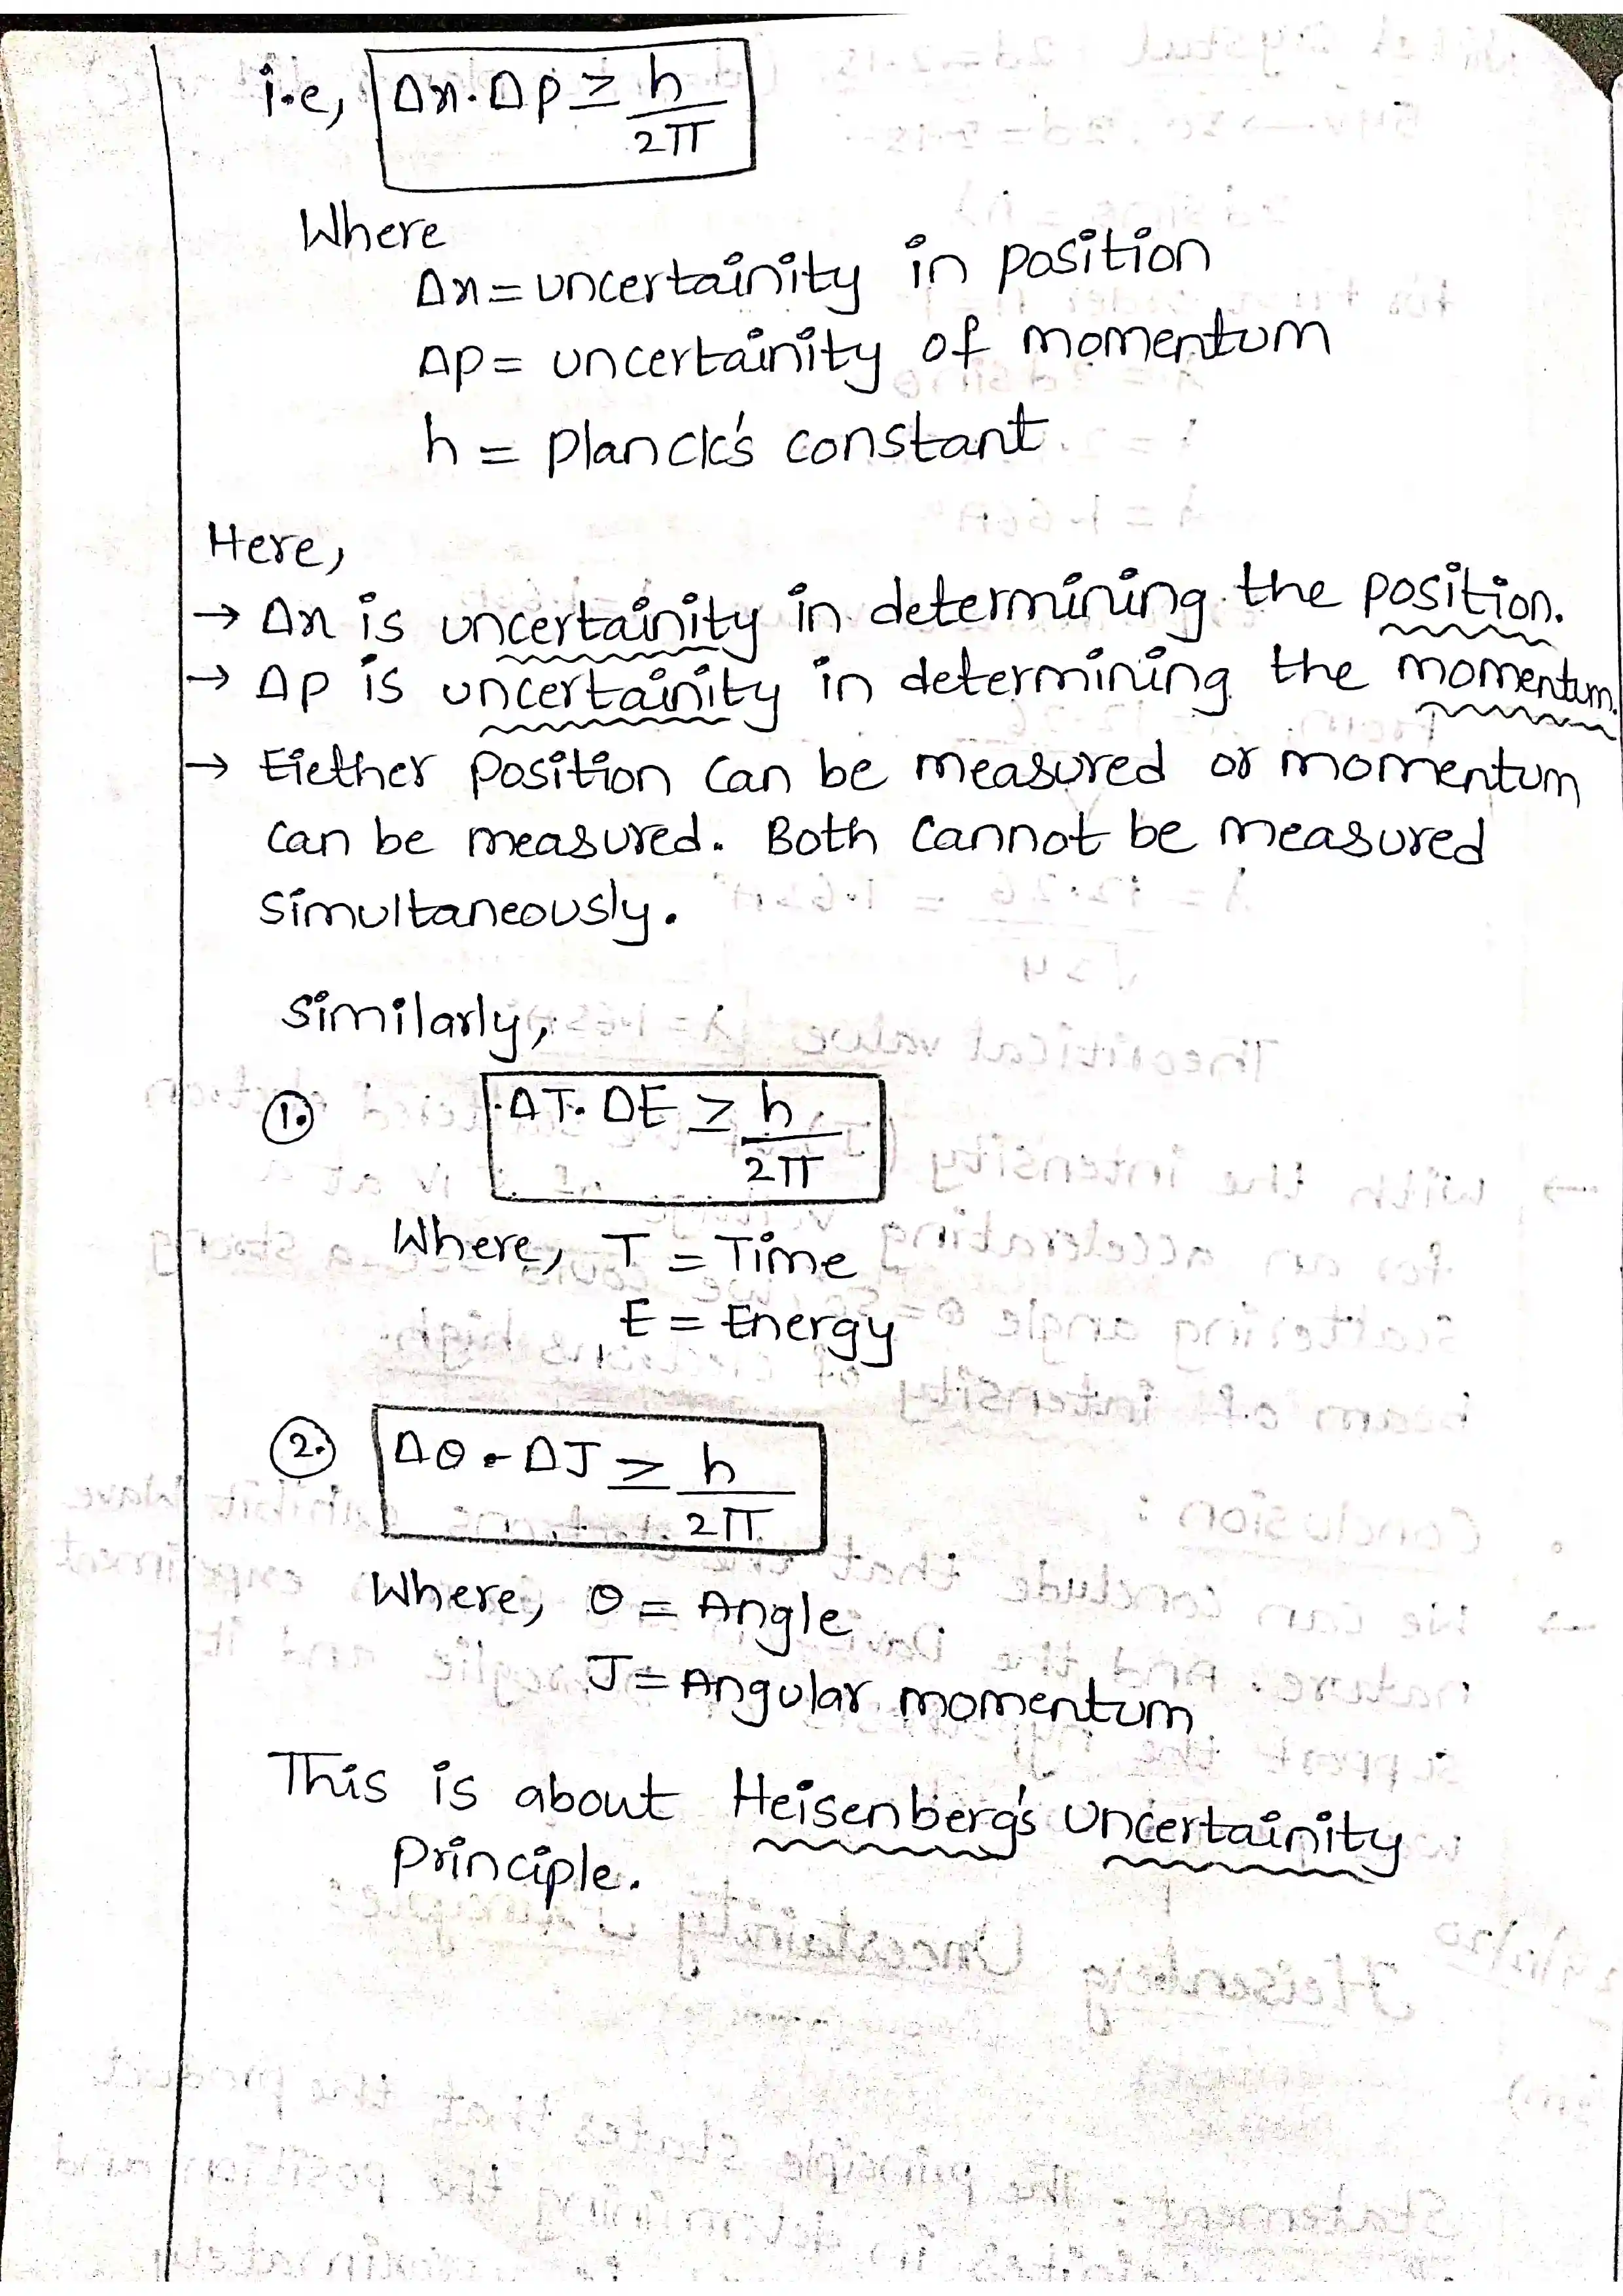 i.e, Δx.Δp ≥ h/2π
Where
Δx = uncertainity in position
Δp = uncertainity of momentum
h = planck's constant
Here,
→ Δx is uncertainity in determining the position.
→ Δp is uncertainity in determining the momentum.
→ Eiether position can be measured or momentum
can be measured. Both cannot be measured
simultaneously.
Similarly,
1. ΔT. ΔE ≥ h/2π
Where, T = Time
E = Energy
2. Δθ . ΔJ ≥ h/2π
Where, θ = Angle
J = Angular momentum
This is about Heisenberg's Uncertainity
principle.